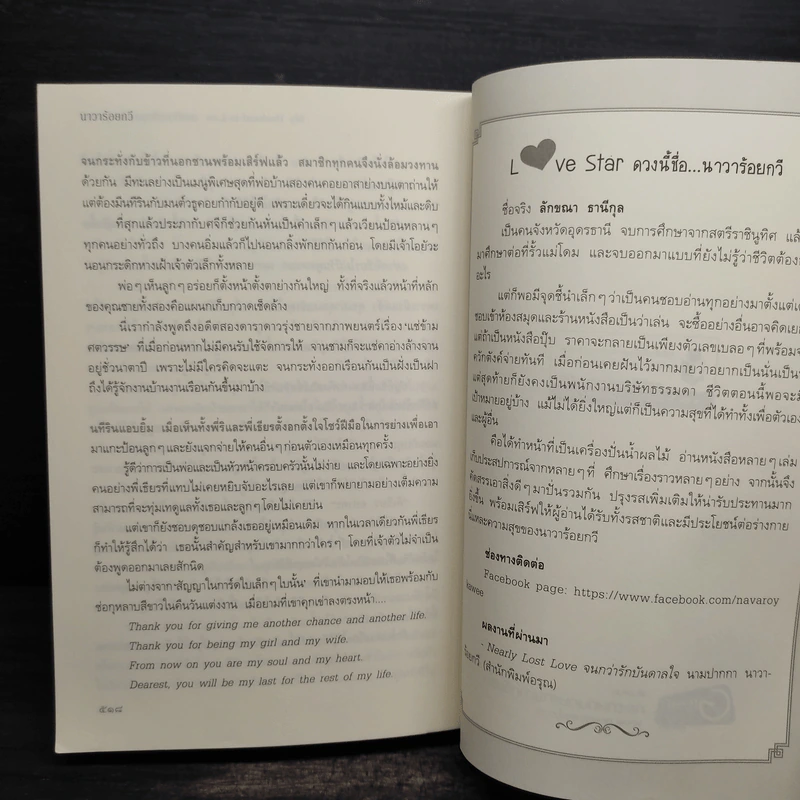 นาวาร้อยกวี
จนกระทั่งกับข้าวที่นอกชานพร้อมเสิร์ฟแล้ว สมาชิกทุกคนจึงนั่งล้อมวงทาน
ด้วยกัน มีทะเลย่างเป็นเมนูพิเศษสุดที่พ่อบ้านสองคนคอยอาสาย่างบนเตาถ่านให้
แต่ต้องมีนทีรินกับมนต์วธูคอยกำกับอยู่ดี เพราะเดี๋ยวจะได้กินแบบทั้งไหม้และดิบ
ที่สุกแล้วประภากับศจีก็ช่วยกันหั่นเป็นคำเล็กๆ แล้วเวียนป้อนหลานๆ
ทุกคนอย่างทั่วถึง บางคนอิ่มแล้วก็ไปนอนกลิ้งพักยกกันก่อน โดยมีเจ้าโอยัวะ
นอนกระดิกหางเฝ้าเจ้าตัวเล็กทั้งหลาย
พ่อๆ เห็นลูกๆ อร่อยก็ตั้งหน้าตั้งตาย่างกันใหญ่ ทั้งที่จริงแล้วหน้าที่หลัก
ของคุณชายทั้งสองคือแผนกเก็บกวาดเช็ดล้าง
นี่เรากำลังพูดถึงอดีตสองดาราดาวรุ่งชายจากภาพยนตร์เรื่อง 'แซ่ข้าม
ศตวรรษ' ที่เมื่อก่อนหากไม่มีคนรับใช้จัดการให้ จานชามก็จะแช่คาอ่างล้างจาน
อยู่ชั่วนาตาปี เพราะไม่มีใครคิดจะแตะ จนกระทั่งออกเรือนกันเป็นฝั่งเป็นฝา
ถึงได้รู้จักงานบ้านงานเรือนกันขึ้นมาบ้าง
นทีรินแอบยิ้ม เมื่อเห็นทั้งพี่ริและพี่เธียรตั้งอกตั้งใจโชว์ฝีมือในการย่างเพื่อเอา
มาแกะป้อนลูกๆ และยังแจกจ่ายให้คนอื่นๆ ก่อนตัวเองเหมือนทุกครั้ง
รู้ดีว่าการเป็นพ่อและเป็นหัวหน้าครอบครัวนั้นไม่ง่าย และโดยเฉพาะอย่างยิ่ง
คนอย่างพี่เธียรที่แทบไม่เคยหยิบจับอะไรเลย แต่เขาก็พยายามอย่างเต็มความ
สามารถที่จะทุ่มเทดูแลทั้งเธอและลูกๆ โดยไม่เคยบ่น
แต่เขาก็ยังชอบดุชอบแกล้งเธออยู่เหมือนเดิม หากในเวลาเดียวกันพี่เธียร
ก็ทำให้รู้สึกได้ว่า เธอนั้นสำคัญสำหรับเขามากกว่าใครๆ โดยที่เจ้าตัวไม่จำเป็น
ต้องพูดออกมาเลยสักนิด
ไม่ต่างจาก 'สัญญาในการ์ดใบเล็กๆ ใบนั้น' ที่เขานำมามอบให้เธอพร้อมกับ
ช่อกุหลาบสีขาวในคืนวันแต่งงาน เมื่อยามที่เขาคุกเข่าลงตรงหน้า....
Thank you for giving me another chance and another life.
Thank you for being my girl and my wife.
From now on you are my soul and my heart.
Dearest, you will be my last for the rest of my life.
๕๑๘
L ve Star ดวงนี้ชื่อ...นาวาร้อยกวี
ชื่อจริง ลักขณา ธานีกุล
เป็นคนจังหวัดอุดรธานี จบการศึกษาจากสตรีราชินูทิศ
มาศึกษาต่อที่รั้วแม่โดม และจบออกมาแบบที่ยังไม่รู้ว่าชีวิตต้อง
อะไร
แต่ก็พอมีจุดชี้นำเล็กๆ ว่าเป็นคนชอบอ่านทุกอย่างมาตั้งแต่
ชอบเข้าห้องสมุดและร้านหนังสือเป็นว่าเล่น จะซื้ออย่างอื่นอาจคิด
แต่ถ้าเป็นหนังสือปุ๊บ ราคาจะกลายเป็นเพียงตัวเลขเบลอๆ ที่พร้อม
ควักตังค์จ่ายทันที เมื่อก่อนเคยฝันไว้มากมายว่าอยากเป็นนั่นเป็น
แต่สุดท้ายก็ยังคงเป็นพนักงานบริษัทธรรมดา ชีวิตตอนนี้พอจะมี
เป้าหมายอยู่บ้าง แม้ไม่ได้ยิ่งใหญ่แต่ก็เป็นความสุขที่ได้ทำทั้งเพื่อตัวเอง
และผู้อื่น
คือได้ทำหน้าที่เป็นเครื่องปั่นน้ำผลไม้ อ่านหนังสือหลายๆ เล่ม
เก็บประสบการณ์จากหลายๆ ที่ ศึกษาเรื่องราวหลายๆ อย่าง จากนั้นจึง
คัดสรรเอาสิ่งดีๆ มาปั่นรวมกัน ปรุงรสเพิ่มเติมให้น่ารับประทานมาก
ยิ่งขึ้น พร้อมเสิร์ฟให้ผู้อ่านได้รับทั้งรสชาติและมีประโยชน์ต่อร่างกาย
นี่แหละความสุขของนาวาร้อยกวี
ช่องทางติดต่อ
Facebook page: https://www.facebook.com/navaroy
kawee
ผลงานที่ผ่านมา
- Nearly Lost Love จนกว่ารักบันดาลใจ นามปากกา นาวา-
ร้อยกวี (สำนักพิมพ์อรุณ)